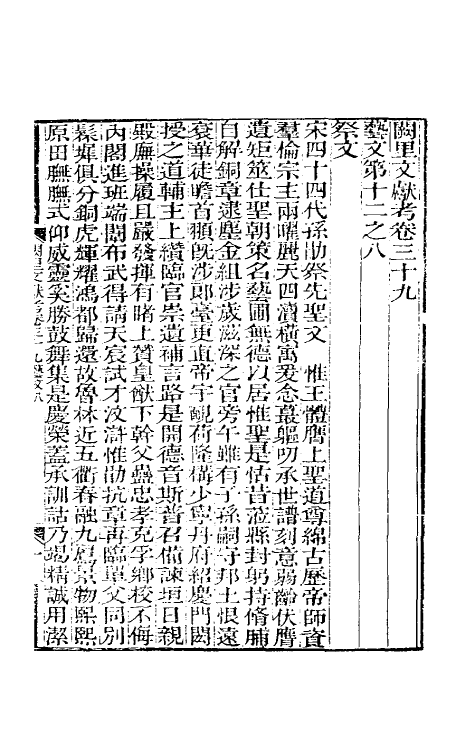 闕里文獻考卷三十九
藝文第十二之八
祭文
宋四十四代孫勖祭先聖文　惟王體膺上聖道尊綿古歷帝師資
羣倫宗主兩曜麗天四瀆橫寓爰念蕞軀叨承世譜刻意弱齡伏膺
遺矩筮仕聖朝策名藝圃無德以居惟聖是怙昔蒞縣封躬持脩脯
自解銅章逮塵金組涉歲滋深之官旁午雖有子孫嗣守邦土恨遠
袞華徒瞻首頖旣涉郎臺更直帝宇覗荷隆構少寧丹府紹慶門閥
授之道輔王上纘臨官崇遺補言路是開德音斯普召備諫垣日親
殿廡操履且嚴發揮有睹上贊皇猷下幹父蠱忠孝克孚鄉校不侮
內閣進班端闈布武得請天宸試才汶滸惟勖抗章再臨單父同別
鬃墀俱分銅虎輝耀鴻都歸還故魯林近五衢春融九扈景物熙熙
原田膴膴式仰威靈奚勝鼓舞集是慶榮蓋承訓詁乃竭精誠用潔